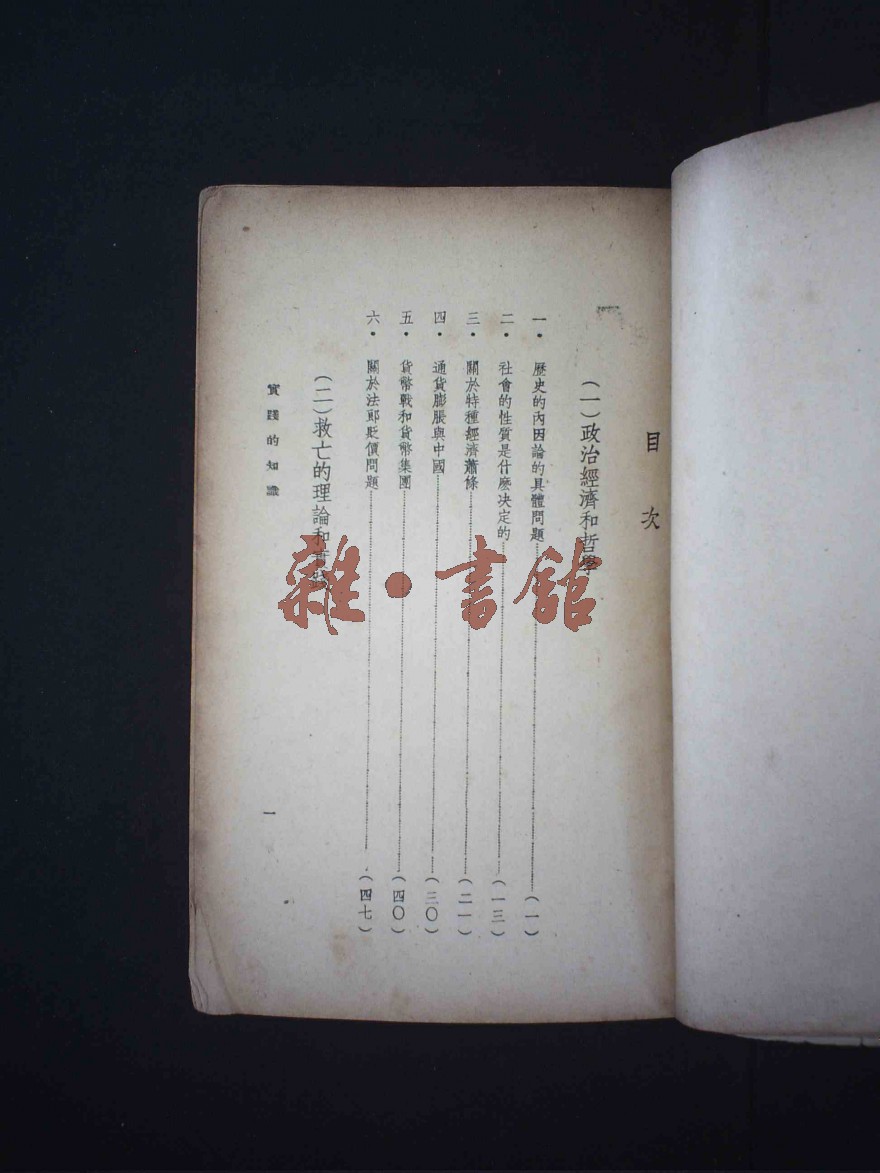 目次
(一)政治經濟和哲學
一・歷史的內因論的具體問題……(一)
二・社會的性質是什麽決定的……(一三)
三・關於特種經濟蕭條……(二一)
四・通貨膨脹與中國……(三〇)
五・貨幣戰和貨幣集團……(四〇)
六・關於法郎貶價問題……(四七)
(二)救亡的理論和
實踐的知識
一
雜・書館